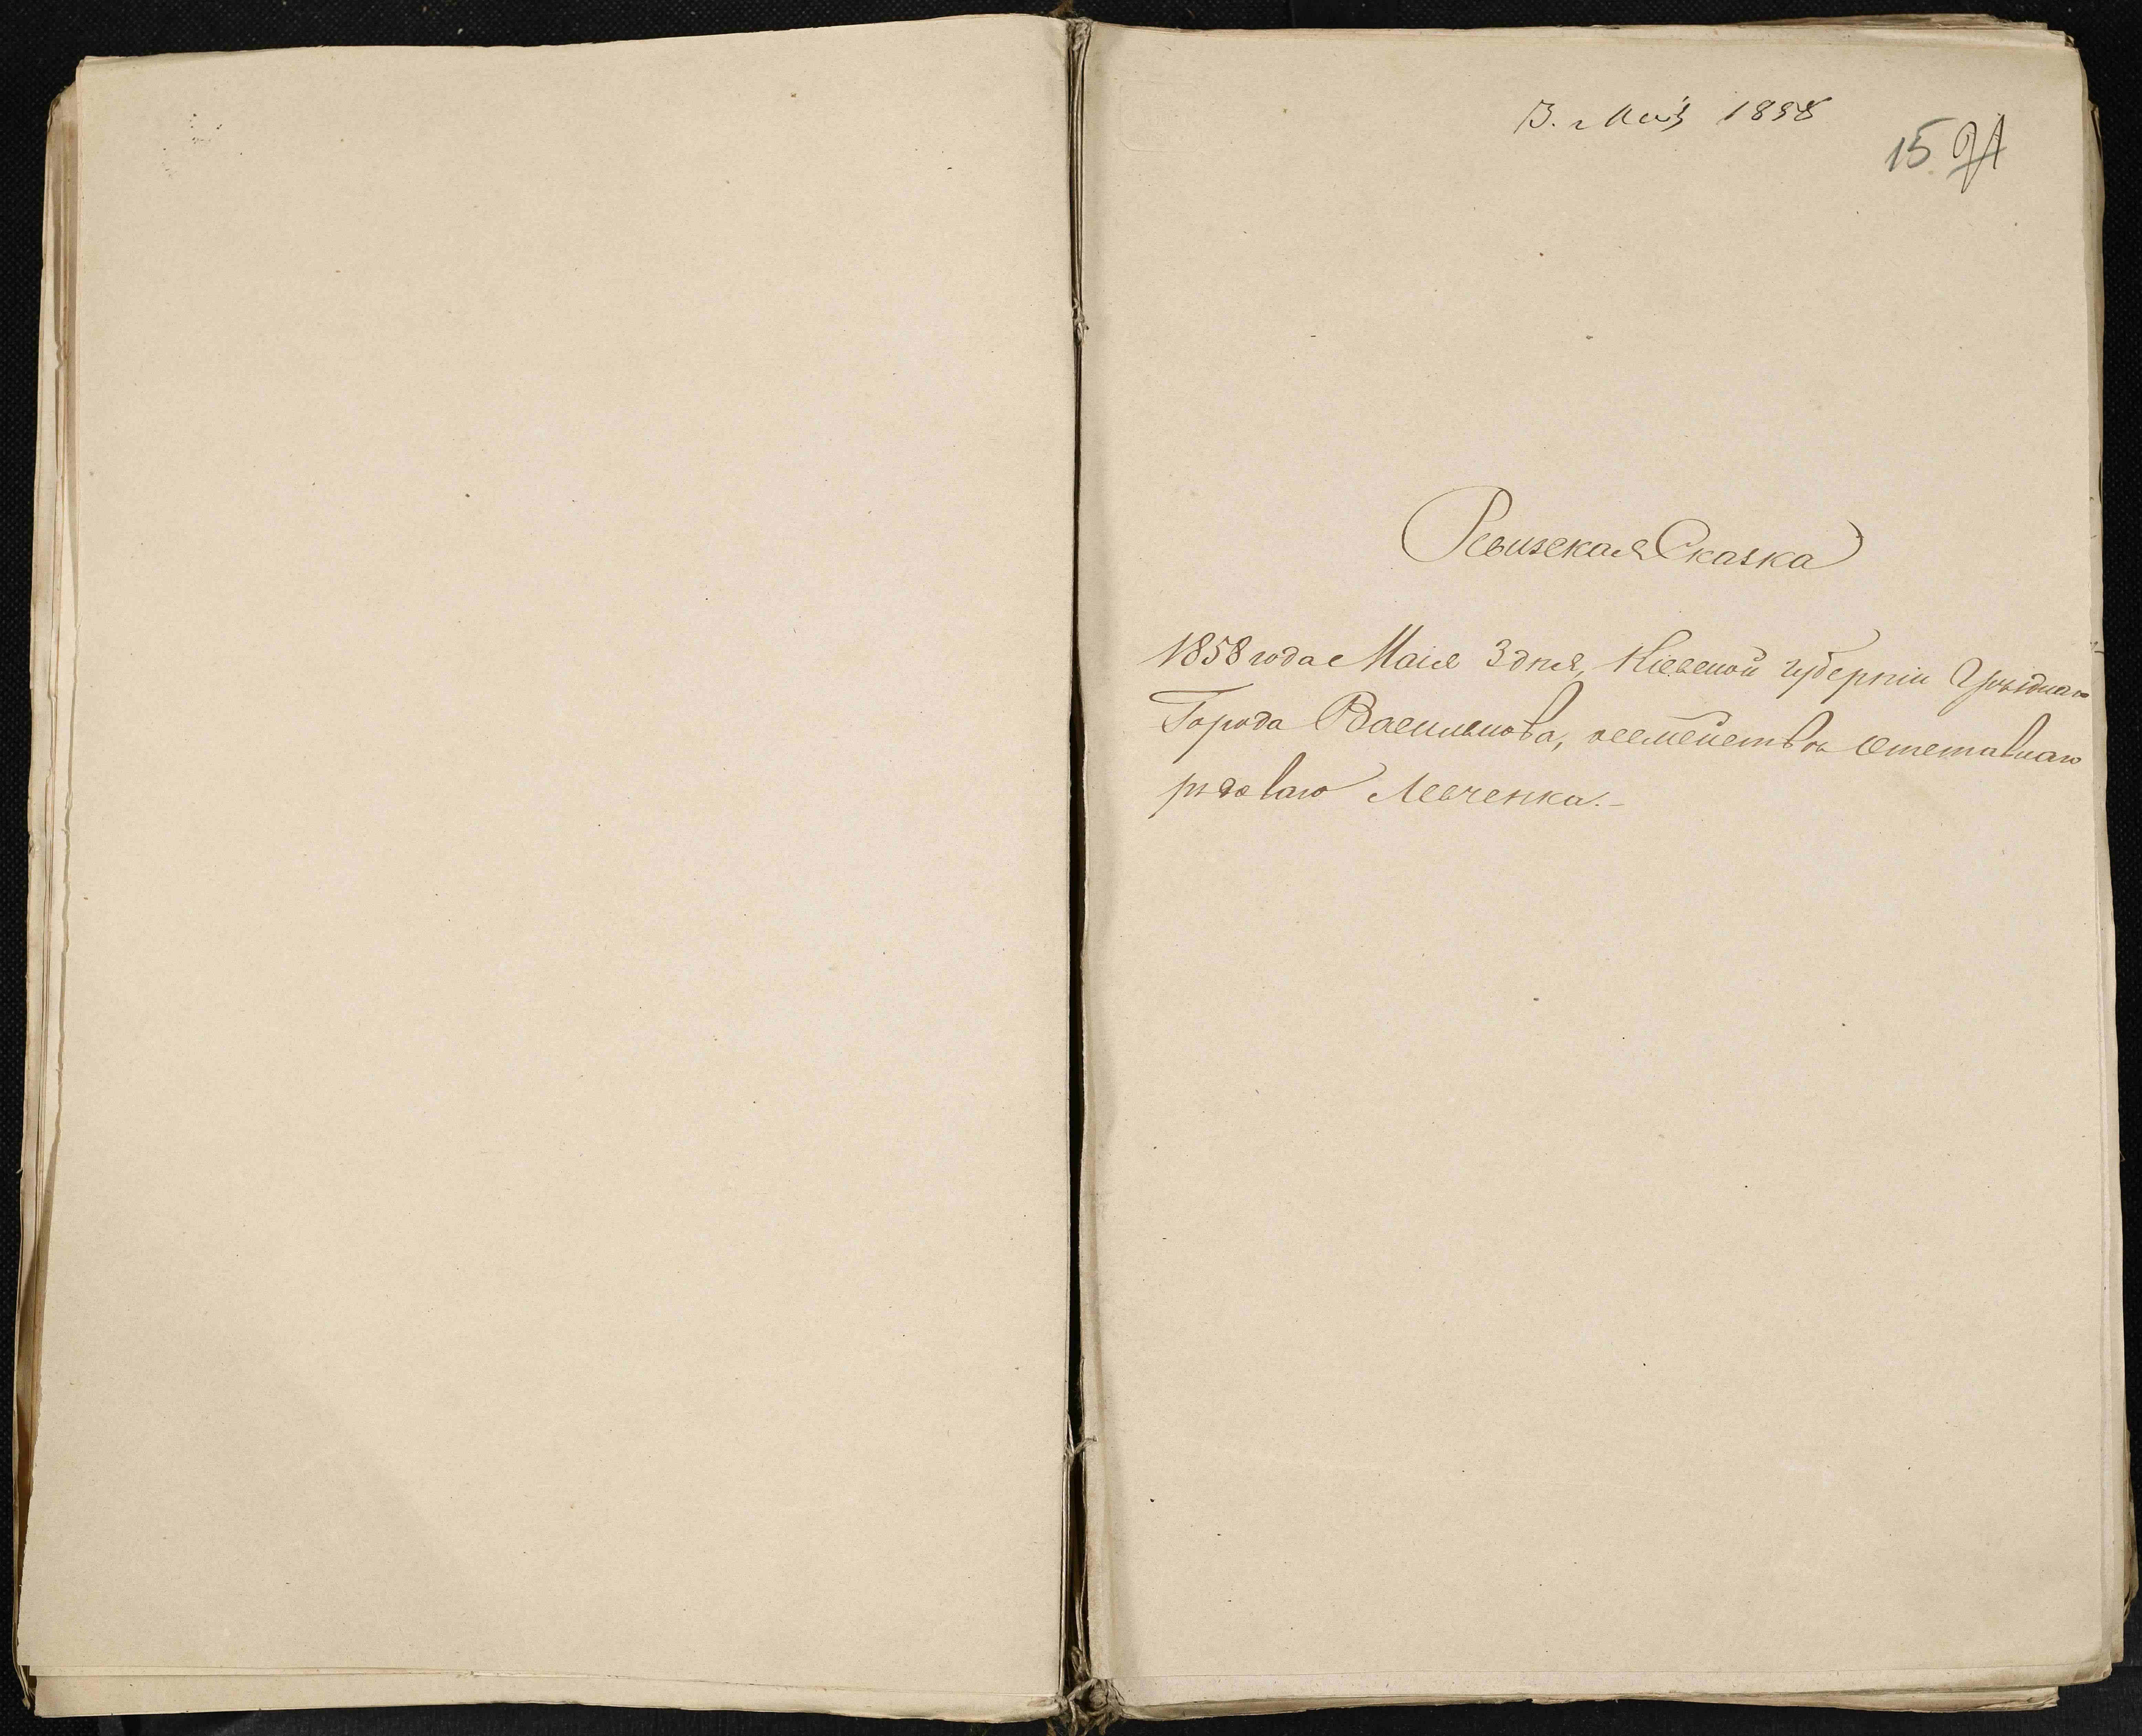 3. Мая 1858
15
Ревизская Сказка
1858 года Маія 3 дня, Кіевской губерніи Уѣзднаго
Города Василькова, о семействѣ Отставнаго
рядоваго Левченка.-